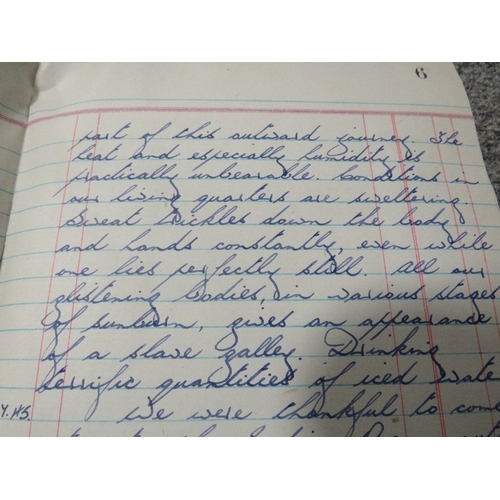 6
part of this outward journey. The
heat and especially humidity is
practically unbearable. Conditions in
our living quarters are sweltering.
Sweat trickles down the body
and hands constantly, even while
one lies perfectly still. All our
glistening bodies, in various stages
of sunburn, gives an appearance
of a slave galley. Drinking
terrific quantities of iced wate
We were thankful to come